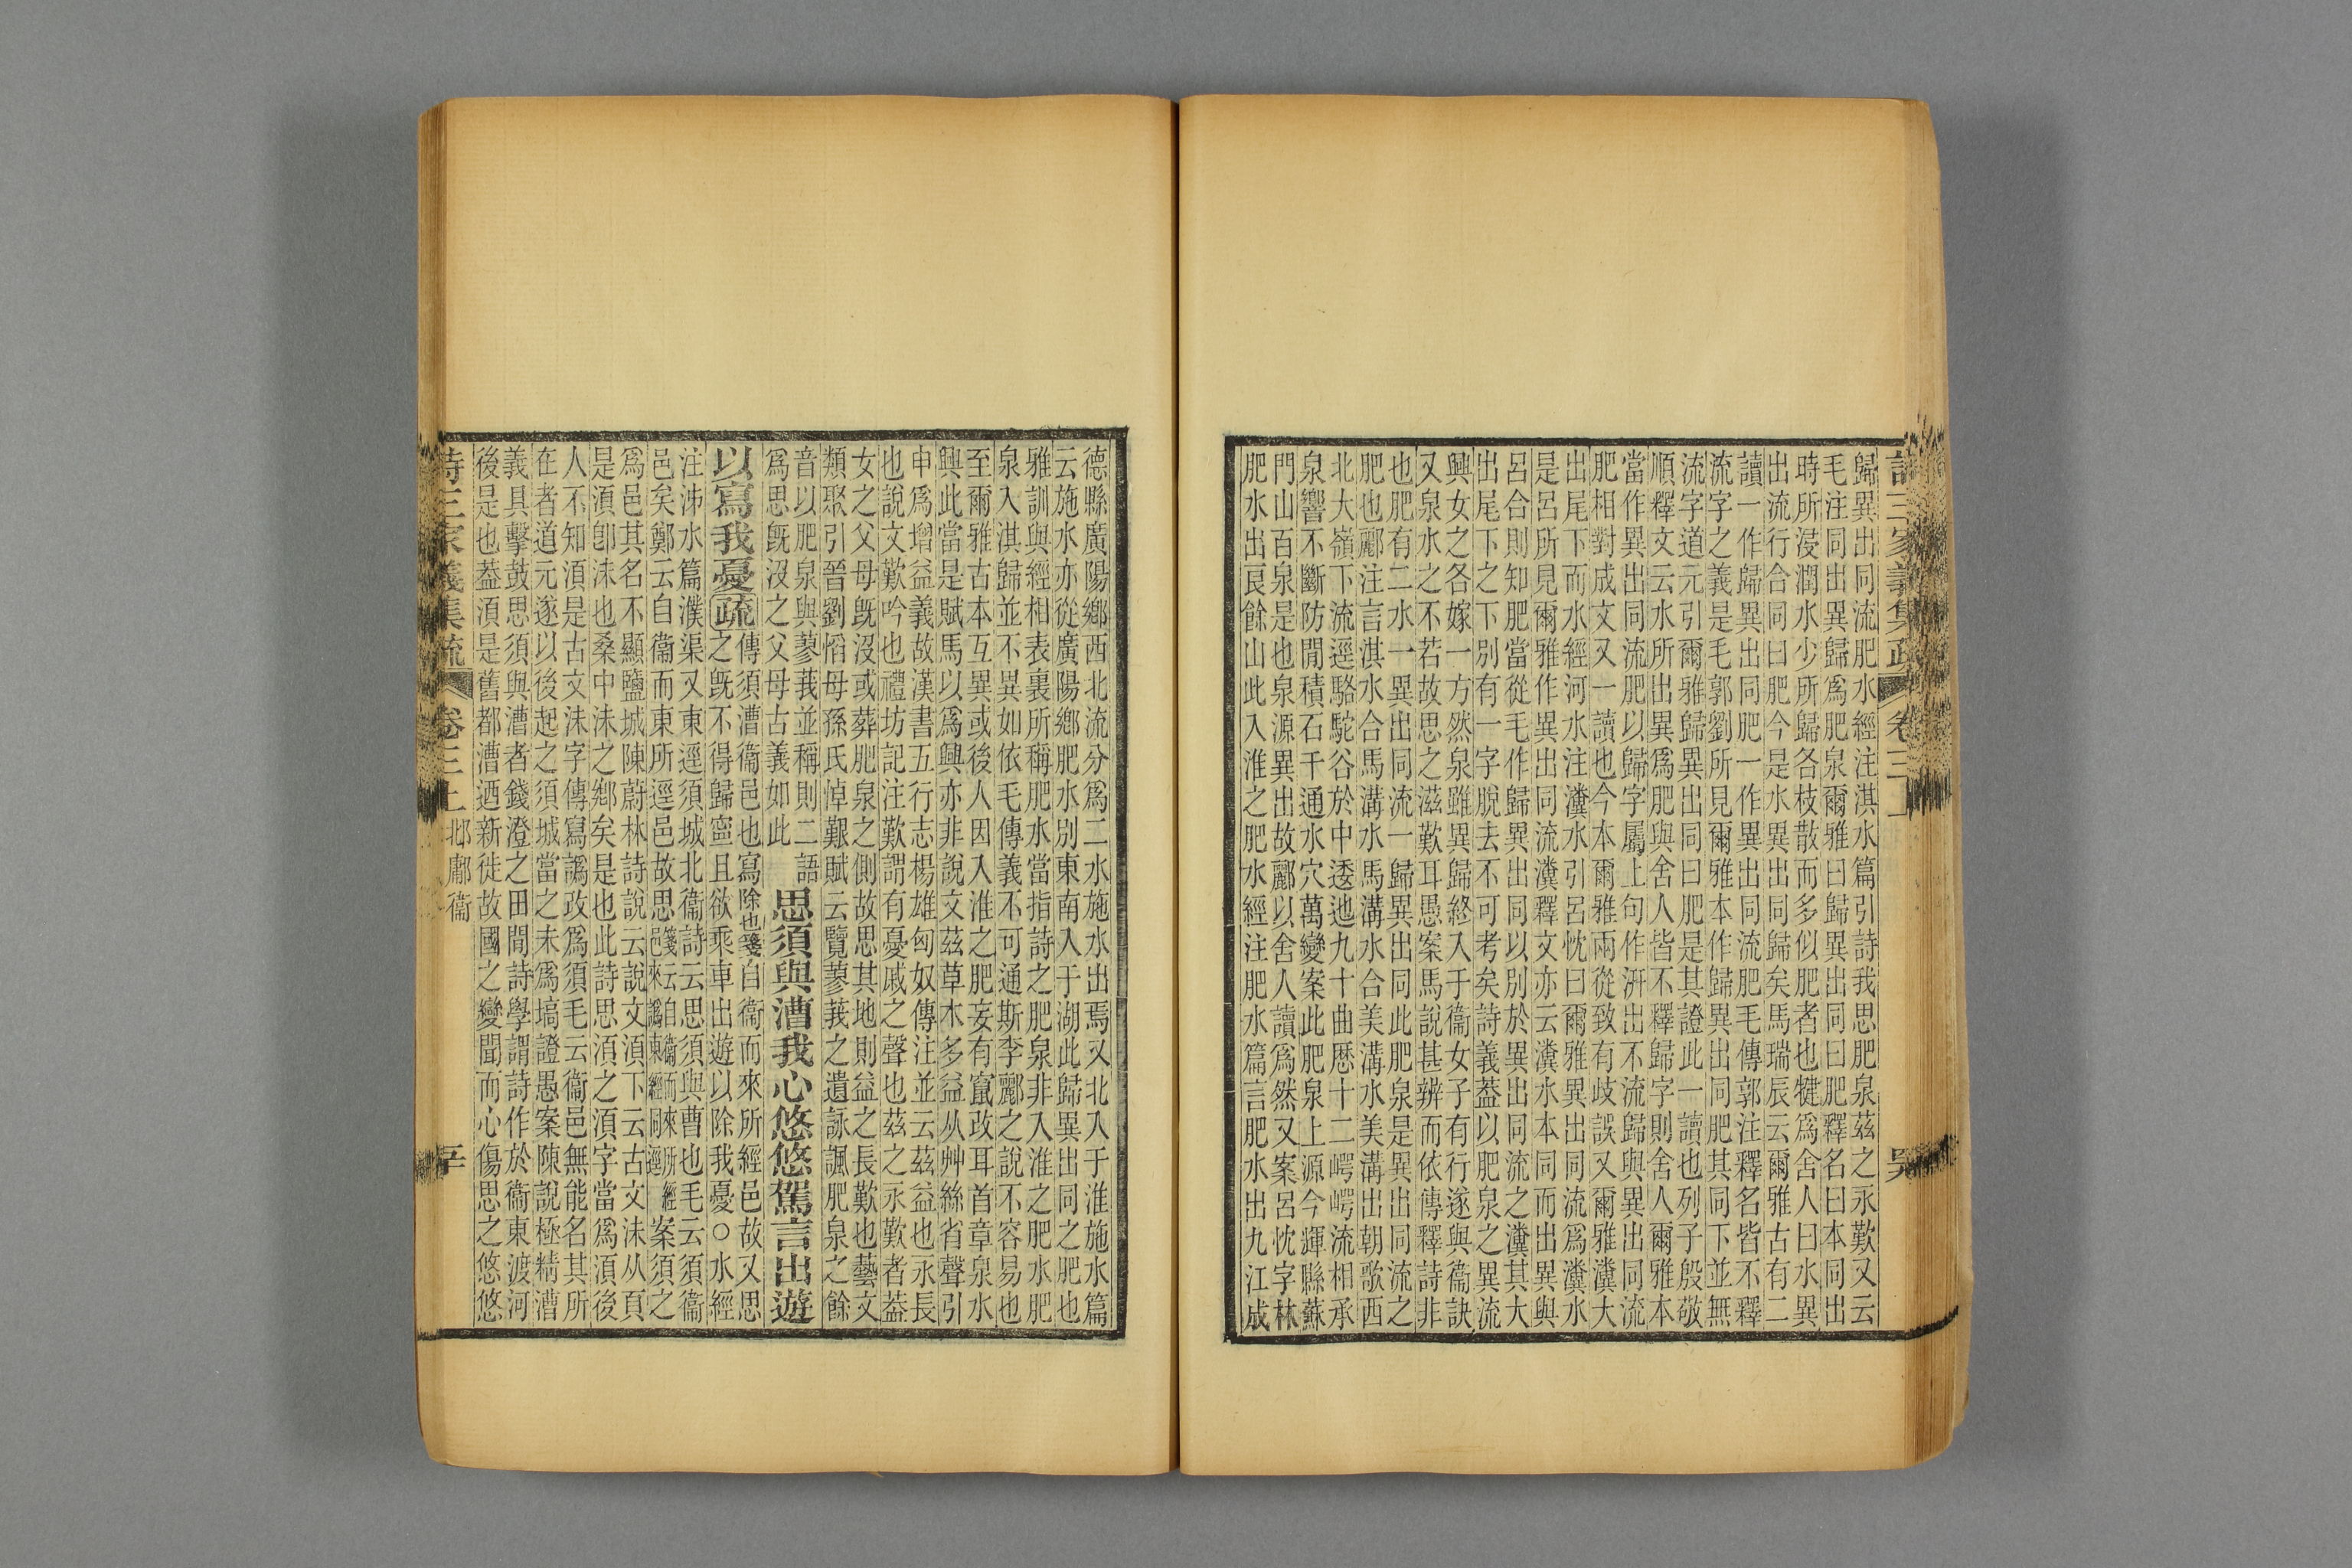 歸異出同流肥水經注淇水篇引詩我思肥泉茲之永歎又云
毛注同出異歸爲肥泉爾雅曰歸異出同曰肥釋名曰本同出
時所浸潤水少所歸各枝散而多似肥者也犍爲舍人曰水異
出流行合同曰肥今是水異出同歸矣馬瑞辰云爾雅古有二
讀一作歸異出同肥一作異出同流肥毛傳郭注釋名皆不釋
流字之義是毛郭劉所見爾雅本作歸異出同肥其同下並無
流字道元引爾雅歸異出同曰肥是其證此一讀也列子殷敬
順釋文云水所出異爲肥與舍人皆不釋歸字則舍人爾雅本
當作異出同流肥以歸字屬上句作汧出不流歸與異出同流
肥相對成文又一讀也今本爾雅兩從致有歧誤又爾雅瀵大
出尾下而水經河水注瀵水引呂忱曰爾雅異出同流爲瀵水
是呂所見爾雅作異出同流瀵釋文亦云瀵水本同而出異與
呂合則知肥當從毛作歸異出同以別於異出同流之瀵其大
出尾下之下別有一字脫去不可考矣詩義葢以肥泉之異流
興女之各嫁一方然泉雖異歸終入于衞女子有行遂與衞訣
又泉水之不若故思之滋歎耳愚案馬說甚辨而依傳釋詩非
也肥有二水一異出同流一歸異出同此肥泉是異出同流之
肥也酈注言淇水合馬溝水馬溝水合美溝水美溝出朝歌西
北大嶺下流逕駱駝谷於中逶迆九十曲歷十二崿崿流相承
泉響不斷防閒積石千通水穴萬變案此肥泉上源今輝縣蘇
門山百泉是也泉源異出故酈以舍人讀爲然又案呂忱字林
肥水出良餘山此入淮之肥水經注肥水篇言肥水出九江成
德縣廣陽鄉西北流分爲二水施水出焉又北入于淮施水篇
云施水亦從廣陽鄉肥水別東南入于湖此歸異出同之肥也
雅訓與經相表裏所稱肥水當指詩之肥泉非入淮之肥水肥
泉入淇歸並不異如依毛傳義不可通斯李酈之說不容易也
至爾雅古本互異或後人因入淮之肥妄有竄改耳首章泉水
興此當是賦馬以爲興亦非說文茲草木多益从艸絲省聲引
申爲增益義故漢書五行志楊雄匈奴傳注並云茲益也永長
也說文歎吟也禮坊記注歎謂有憂戚之聲也茲之永歎者葢
女之父母旣沒或葬肥泉之側故思其地則益之長歎也藝文
類聚引晉劉惛母孫氏悼艱賦云覽蓼莪之遺詠諷肥泉之餘
音以肥泉與蓼莪並稱則二語
爲思旣沒之父母古義如此
思須與漕我心悠悠駕言出遊
以寫我憂疏
傳須漕衞邑也寫除也箋自衞而來所經邑故又思
之旣不得歸寧且欲乘車出遊以除我憂○水經
注沛水篇濮渠又東逕須城北衞詩云思須與曹也毛云須衞
邑矣鄭云自衞而東所逕邑故思箋云自衞而來所經邑來譌東經同逕案須之
爲邑其名不顯鹽城陳蔚林詩說云說文湏下云古文沬从頁
是湏卽沬也桑中沬之鄉矣是也此詩思湏之湏字當爲湏後
人不知湏是古文沬字傳寫譌改爲須毛云衞邑無能名其所
在者道元遂以後起之須城當之未爲塙證愚案陳說極精漕
義具擊鼓思須與漕者錢澄之田閒詩學謂詩作於衞東渡河
後是也葢湏是舊都漕迺新徙故國之變聞而心傷思之悠悠
詩三家義集疏 卷三上 邶鄘衞